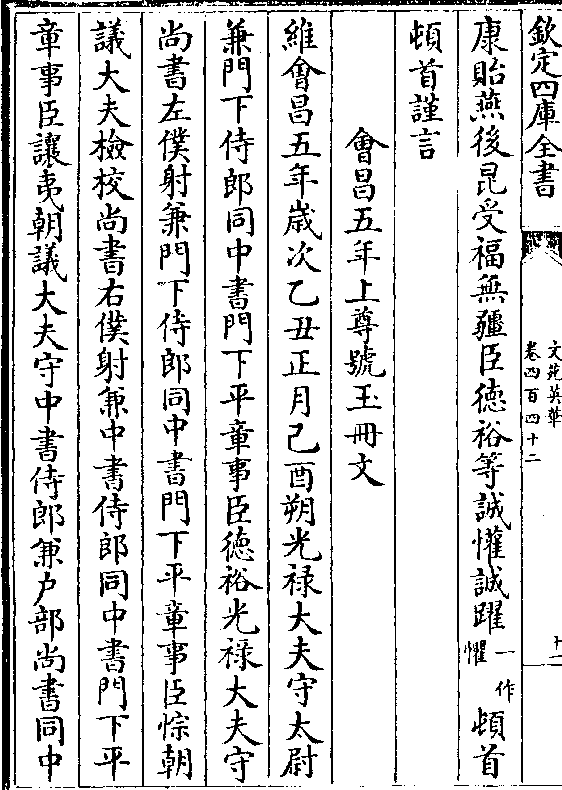 欽定四庫全書
文苑英華
卷四百四十二
十一
康貽燕後昆受福無疆臣徳裕等誠懽誠躍一作懼頓首
頓首謹言
會昌五年上尊號玉冊文
維會昌五年歳次乙丑正月己酉朔光禄大夫守太尉
兼門下侍郎同中書門下平章事臣徳裕光禄大夫守
尚書左僕射兼門下侍郎同中書門下平章事臣悰朝
議大夫檢校尚書右僕射兼中書侍郎同中書門下平
章事臣讓夷朝議大夫守中書侍郎兼户部尚書同中